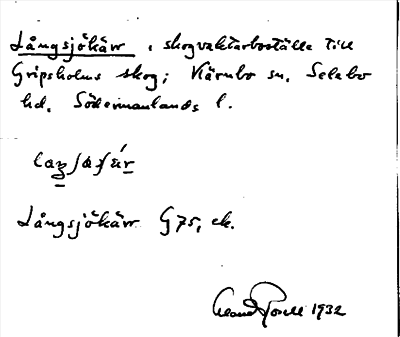 Långsjökärr, skogvaktarboställe till
Gripsholms skog; Kärnbo sn, Selebo
hd, Södermanlands l.
Långsjökärr G 75, ek.
1932